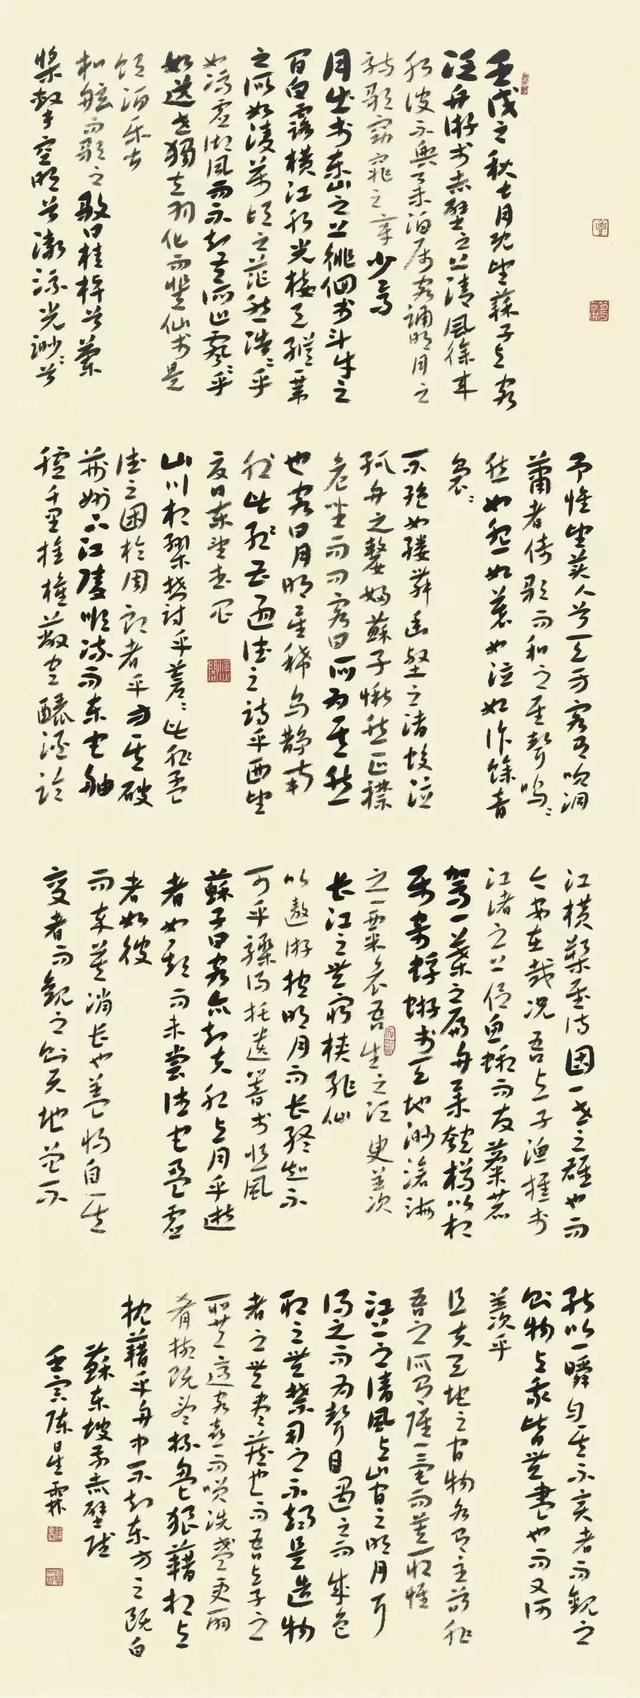 壬戌之秋七月既望蘇子与客
泛舟游於赤壁之上清風徐来
水波不興举酒属客誦明月之
詩歌窈窕之章少焉
月出於东山之上徘徊於斗牛之
间白露横江水光接天縱一葦
之所如凌萬顷之茫然浩浩乎
如馮虚御風而不知其所止飘飘乎
如遗世獨立羽化而登仙於是
饮酒乐甚
扣舷而歌之歌曰桂棹兮蘭
槳擊空明兮溯流光渺渺兮
予懷望美人兮天一方客有吹洞
萧者倚歌而和之其聲呜呜
然如怨如慕如泣如诉餘音
袅袅
不绝如縷舞幽壑之潜蛟泣
孤舟之嫠婦蘇子愀然正襟
危坐而问客曰何为其然
也客曰月明星稀乌鹊南
飛此非孟德之詩乎西望
夏口东望武昌
山川相缪欝乎蒼蒼此非孟
德之困於周郎者乎方其破
荆州下江陵顺流而东也舳
艫千里旌旗蔽空釃酒臨
江横槊赋诗固一世之雄也而
今安在哉况吾与子渔樵於
江渚之上侣魚蝦而友麋鹿
驾一葉之扁舟举匏樽以相
属寄蜉蝣於天地渺滄海
之一粟哀吾生之须臾羡
长江之無窮挟飛仙
以遨游抱明月而长终知不
可乎驟得托遗響於悲風
蘇子曰客亦知夫水与月乎逝
者如斯而未嘗往也盈虚
者如彼
而卒莫消长也盖将自其
变者而觀之则天地曾不
能以一瞬自其不变者而觀之
则物与我皆無盡也而又何
羡乎
且夫天地之间物各有主苟非
吾之所有雖一毫而莫取惟
江上之清風与山间之明月耳
得之而为聲目遇之而成色
取之無禁用之不竭是造物
者之無尽藏也而吾与子之
所共適客喜而笑洗盏更酌
肴核既尽杯盘狼藉相与
枕藉乎舟中不知东方之既白
蘇东坡前赤壁赋
壬寅陈星霖